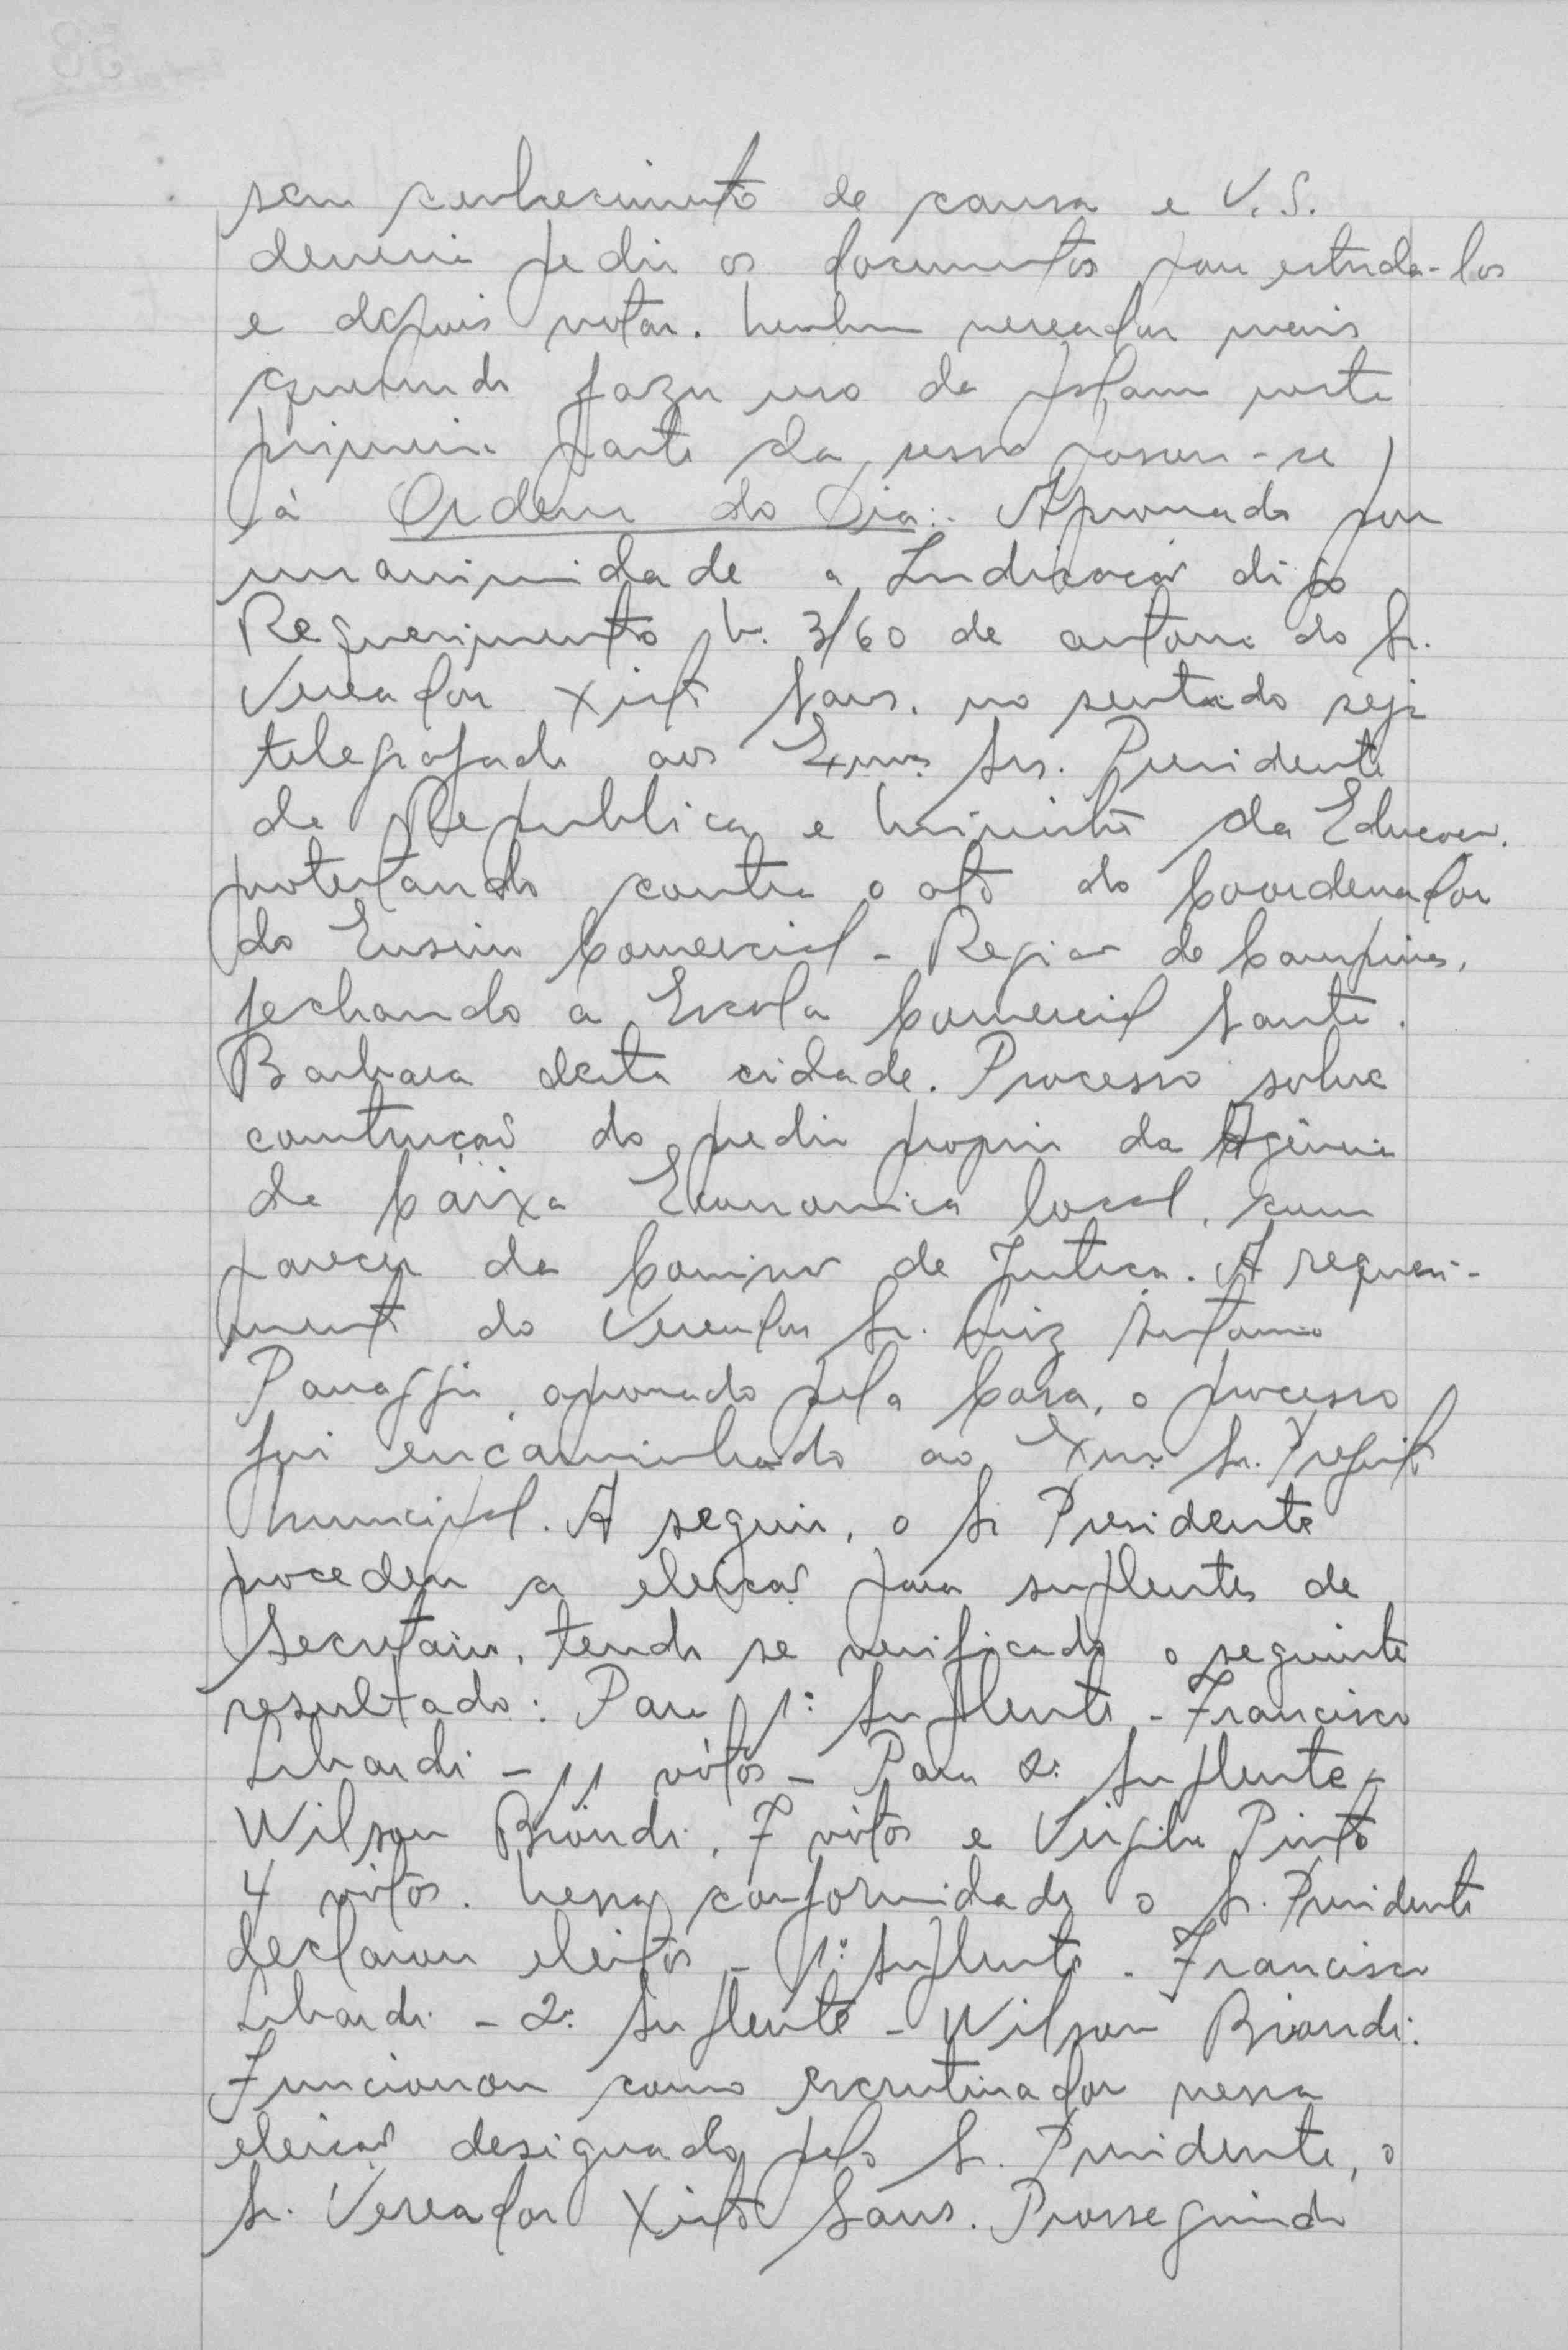 sem conhecimento de causa e V. S.
deveria pedir os documentos para estuda-los
e depois votar. Nenhum vereador mais
querendo fazer uso da palavra nesta
primeira parte da sessão passou-se
à Ordem do Dia:- Aprovada por
unanimidade a Indicação digo
Requerimento N. 3/60 de autoria do Sr.
Vereador Xisto Sans. no sentido seja
telegrafado aos Exmos Srs. Presidente
da Republica e Ministro da Educação.
protestando contra o ato do Coordenador
do Ensino Comercial - Região de Campinas,
fechando a Escola Comercial Santa
Barbara desta cidade. Processo sobre
contrução do predio proprio da Agência
da Caixa Economica local, com
parecer da Comissão de Justiça. A requeri-
mento do Vereador Sr. Luiz Antonio
Panaggio, aprovado pela Casa, o processo
foi encaminhado ao Exmo Sr. Prefeito
Municipal. A seguir, o Sr Presidente
procedeu a eleição para suplentes de
Secretário, tendo se verificado o seguinte
resultado: Para 1º Suplente - Francisco
Libardi - 11 vótos - Para 2º Suplente -
Wilson Biondi, 7 vótos e Virgilio Pinto
4 vótos. Nessa conformidade o Sr. Presidente
declarou eleitos - 1º Suplente - Francisco
Libardi - 2º Suplente - Wilson Biondi.
Funcionou como escrutinador nessa
eleição designado pelo Sr. Presidente, o
Sr. Vereador Xisto Sans. Prosseguindo